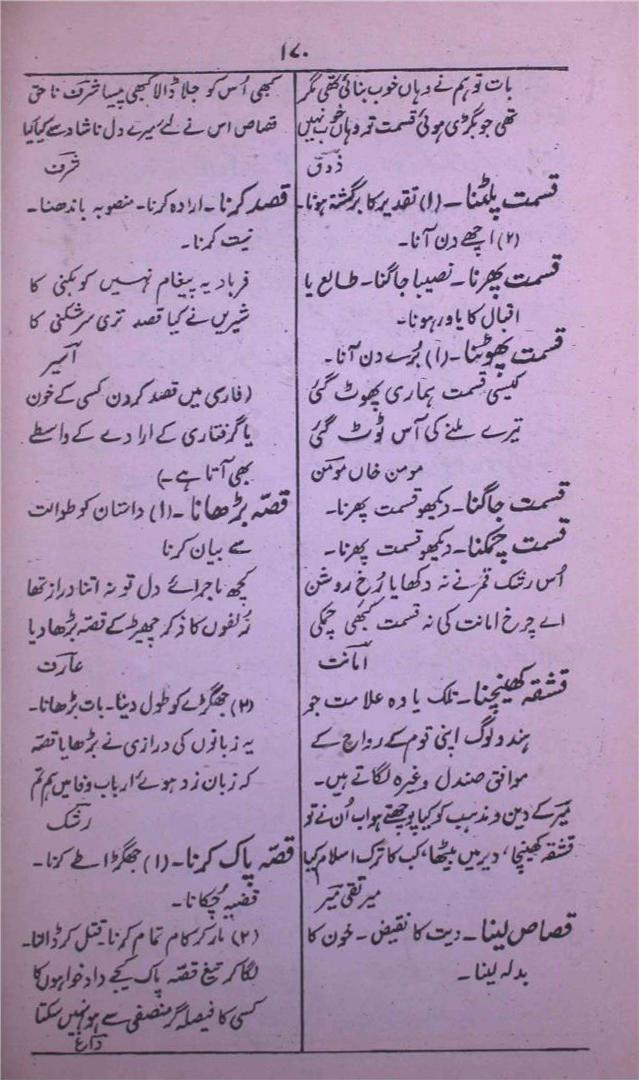 ۱۷۰
بات تو ہم نے وہاں خوب بنائی تھی مگر
تھی جو بگڑی ہوئی قسمت تو وہاں خوب نہیں
ذوقؔ
قسمت پلٹنا۔ (۱) تقدیر کا برگشتہ ہونا۔
(۲) اچھے دن آنا۔
قسمت پھرنا۔ نصیبا جاگنا۔ طالع یا
اقبال کا یاور ہونا۔
قسمت پھوٹنا۔ (۱) بُرے دن آنا۔
کیسی قسمت ہماری پھوٹ گئی
تیرے ملنے کی آس ٹوٹ گئی
مومن خاں مومنؔ
قسمت جاگنا۔ دیکھو قسمت پھرنا۔
قسمت چمکنا۔ دیکھو قسمت پھرنا۔
اُس رشک قمر نے نہ دکھایا رُخ روشن
اے چرخ امانت کی نہ قسمت کبھی چمکی
امانتؔ
قشقہ کھینچنا۔ تلک یا وہ علامت جو
ہندو لوگ اپنی قوم کے رواج کے
موافق صندل وغیرہ لگاتے ہیں۔
میرؔ کے دین و مذہب کو کیا پوچھتے ہو اب اُن نے تو
قشقہ کھینچا، دیر میں بیٹھا، کب کا ترک اسلام کیا
میر تقی میرؔ
قصاص لینا۔ دیت کا نقیض۔ خون کا
بدلہ لینا۔
کبھی اُس کو جلا ڈالا کبھی پیسا شرفؔ ناحق
قصاص اس نے لئے میرے دل ناشاد سے کیا کیا
شرفؔ
قصد کرنا۔ ارادہ کرنا۔ منصوبہ باندھنا۔
نیت کرنا۔
فرہاد یہ پیغام نہیں کوہکنی کا
شیریں نے کیا قصد تری سرشکنی کا
اسیرؔ
(فارسی میں قصد کردن کسی کے خون
یا گرفتاری کے ارادے کے واسطے
بھی آتا ہے۔)
قصّہ بڑھانا۔ (۱) داستان کو طوالت
سے بیان کرنا
کچھ ماجرائے دل تو نہ اتنا دراز تھا
زُلفوں کا ذکر چھیڑ کے قصّہ بڑھا دیا
عارفؔ
(۲) جھگڑے کو طول دینا۔ بات بڑھانا۔
یہ زبانوں کی درازی نے بڑھایا قصّہ
کہ زبان زد ہوئے ارباب وفا میں ہم تم
رشکؔ
قصّہ پاک کرنا۔ (۱) جھگڑا طے کرنا۔
قضیہ چُکانا۔
(۲) مار کر کام تمام کرنا۔ قتل کر ڈالنا۔
لگا کر تیغ قصّہ پاک کیجے داد خواہوں کا
کسی کا فیصلہ گر منصفی سے ہو نہیں سکتا
داغؔ